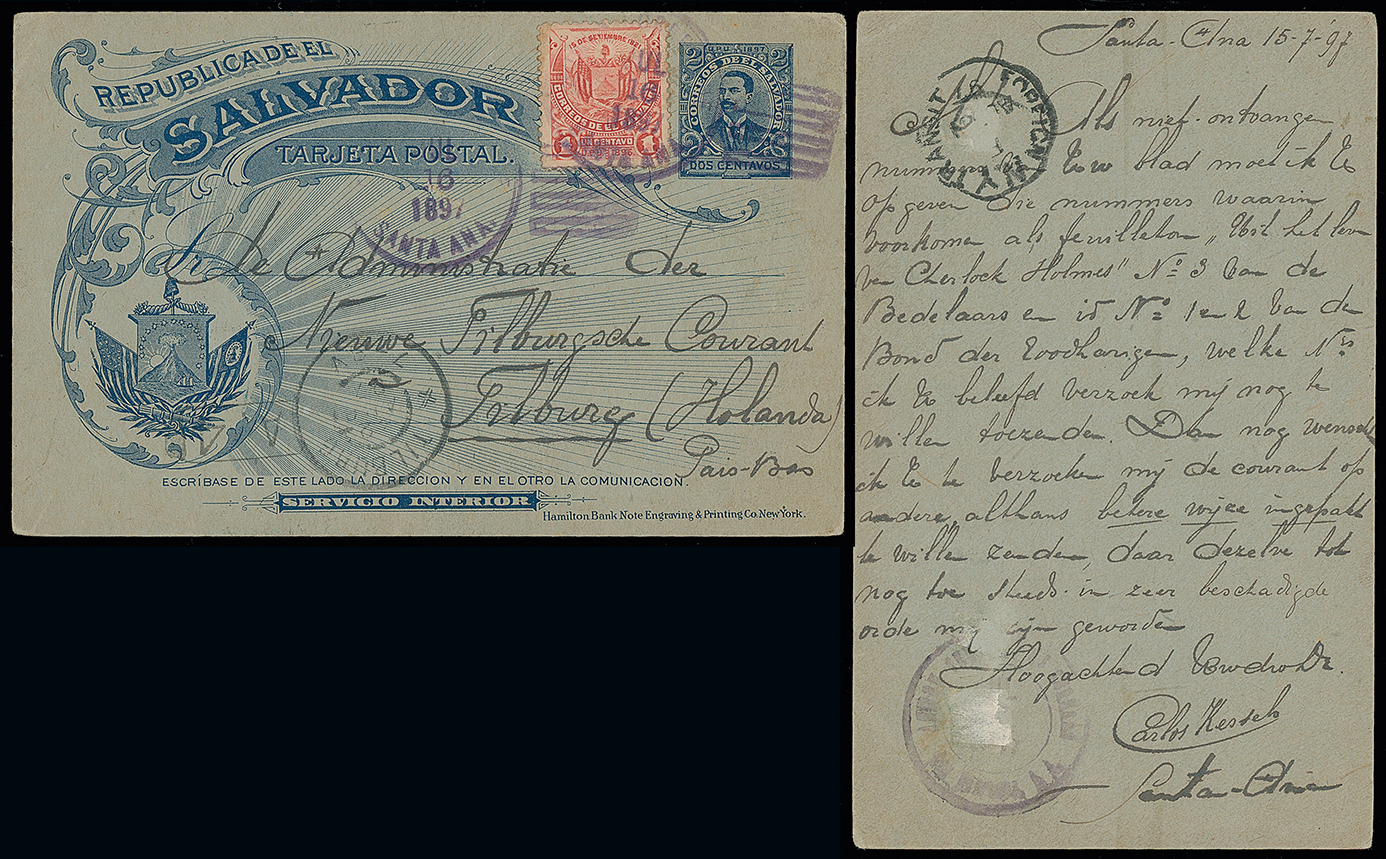 REPUBLICA DE EL
SALVADOR
TARJETA POSTAL.
15 DE SETIEMBRE 1821
CORREOS DE EL SALVADOR
UN CENTAVO
1 1
U.P.U. 1897
2 2
CORREOS DE EL SALVADOR
DOS CENTAVOS
16
1897
SANTA ANA
16
1897
SANTA ANA
De Administratie der
Nieuwe Tilburgsche Courant
Tilburg (Holanda)
Pais-Bas
ESCRÍBASE DE ESTE LADO LA DIRECCION Y EN EL OTRO LA COMUNICACION.
SERVICIO INTERIOR
Hamilton Bank Note Engraving & Printing Co. New York.
Santa-Ana 15-7-'97
TRANSIT
N.Y.
Als niet-ontvangen
nummers Uw blad moet ik U
opgeven die nummers waarin
voorkomen als feuilleton „Uit het leven
van Cherlock Holmes" No 3 van de
Bedelaars en id No 1 en 2 van den
Bond der roodharigen, welke Nrs
ik U beleefd verzoek mij nog te
willen toezenden. Dan nog wensch
ik U te verzoeken mij de courant op
andere, althans betere wijze ingepakt
te willen zenden, daar dezelve tot
nog toe steeds in zeer beschadigde
orde mij zijn geworden
Hoogachtend
Carlos Kessels
Santa-Ana